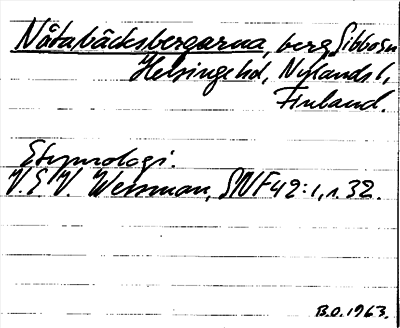 Nåtabäcksbergarna, berg Sibbosn
Helsinge hd, Nylands l,
Finland.
Etymologi.
V.E.V. Wessman, SNF 42:1, s. 32.
B.O. 1963.